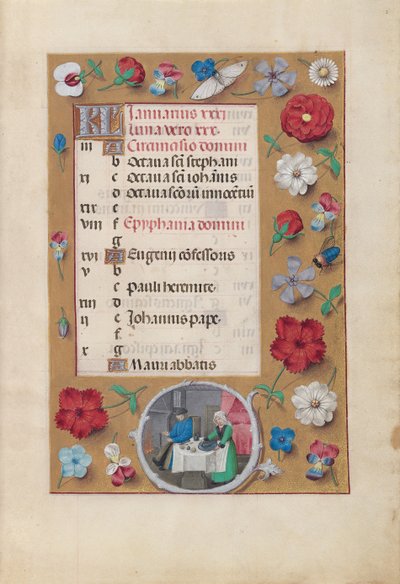 KL Januarius xxxi
Luna vero xxx.
iii A Circumcisio domini
b Octaua sci stephani
xi c Octaua sci iohānis
d Octaua scōrū innocētiū
xix e
viii f Epyphania domini
g
xvi A Eugenii cōfessoris
v b
c Pauli heremite.
xiii d
ii e Iohannis pape.
f
x g
A Mauri abbatis